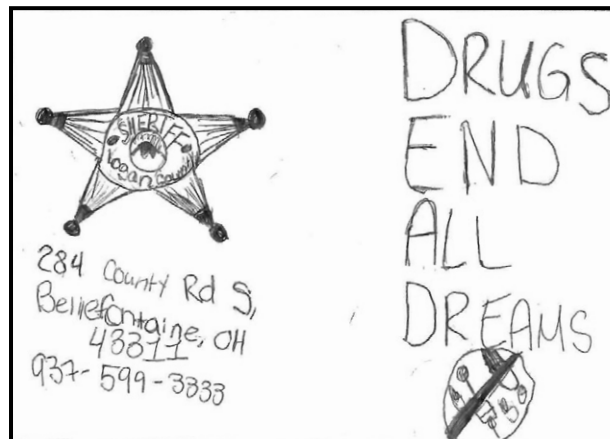 SHERIFF
Logan County
284 County Rd S,
Bellefontaine, OH
43311
937-599-3333
DRUGS
END
ALL
DREAMS